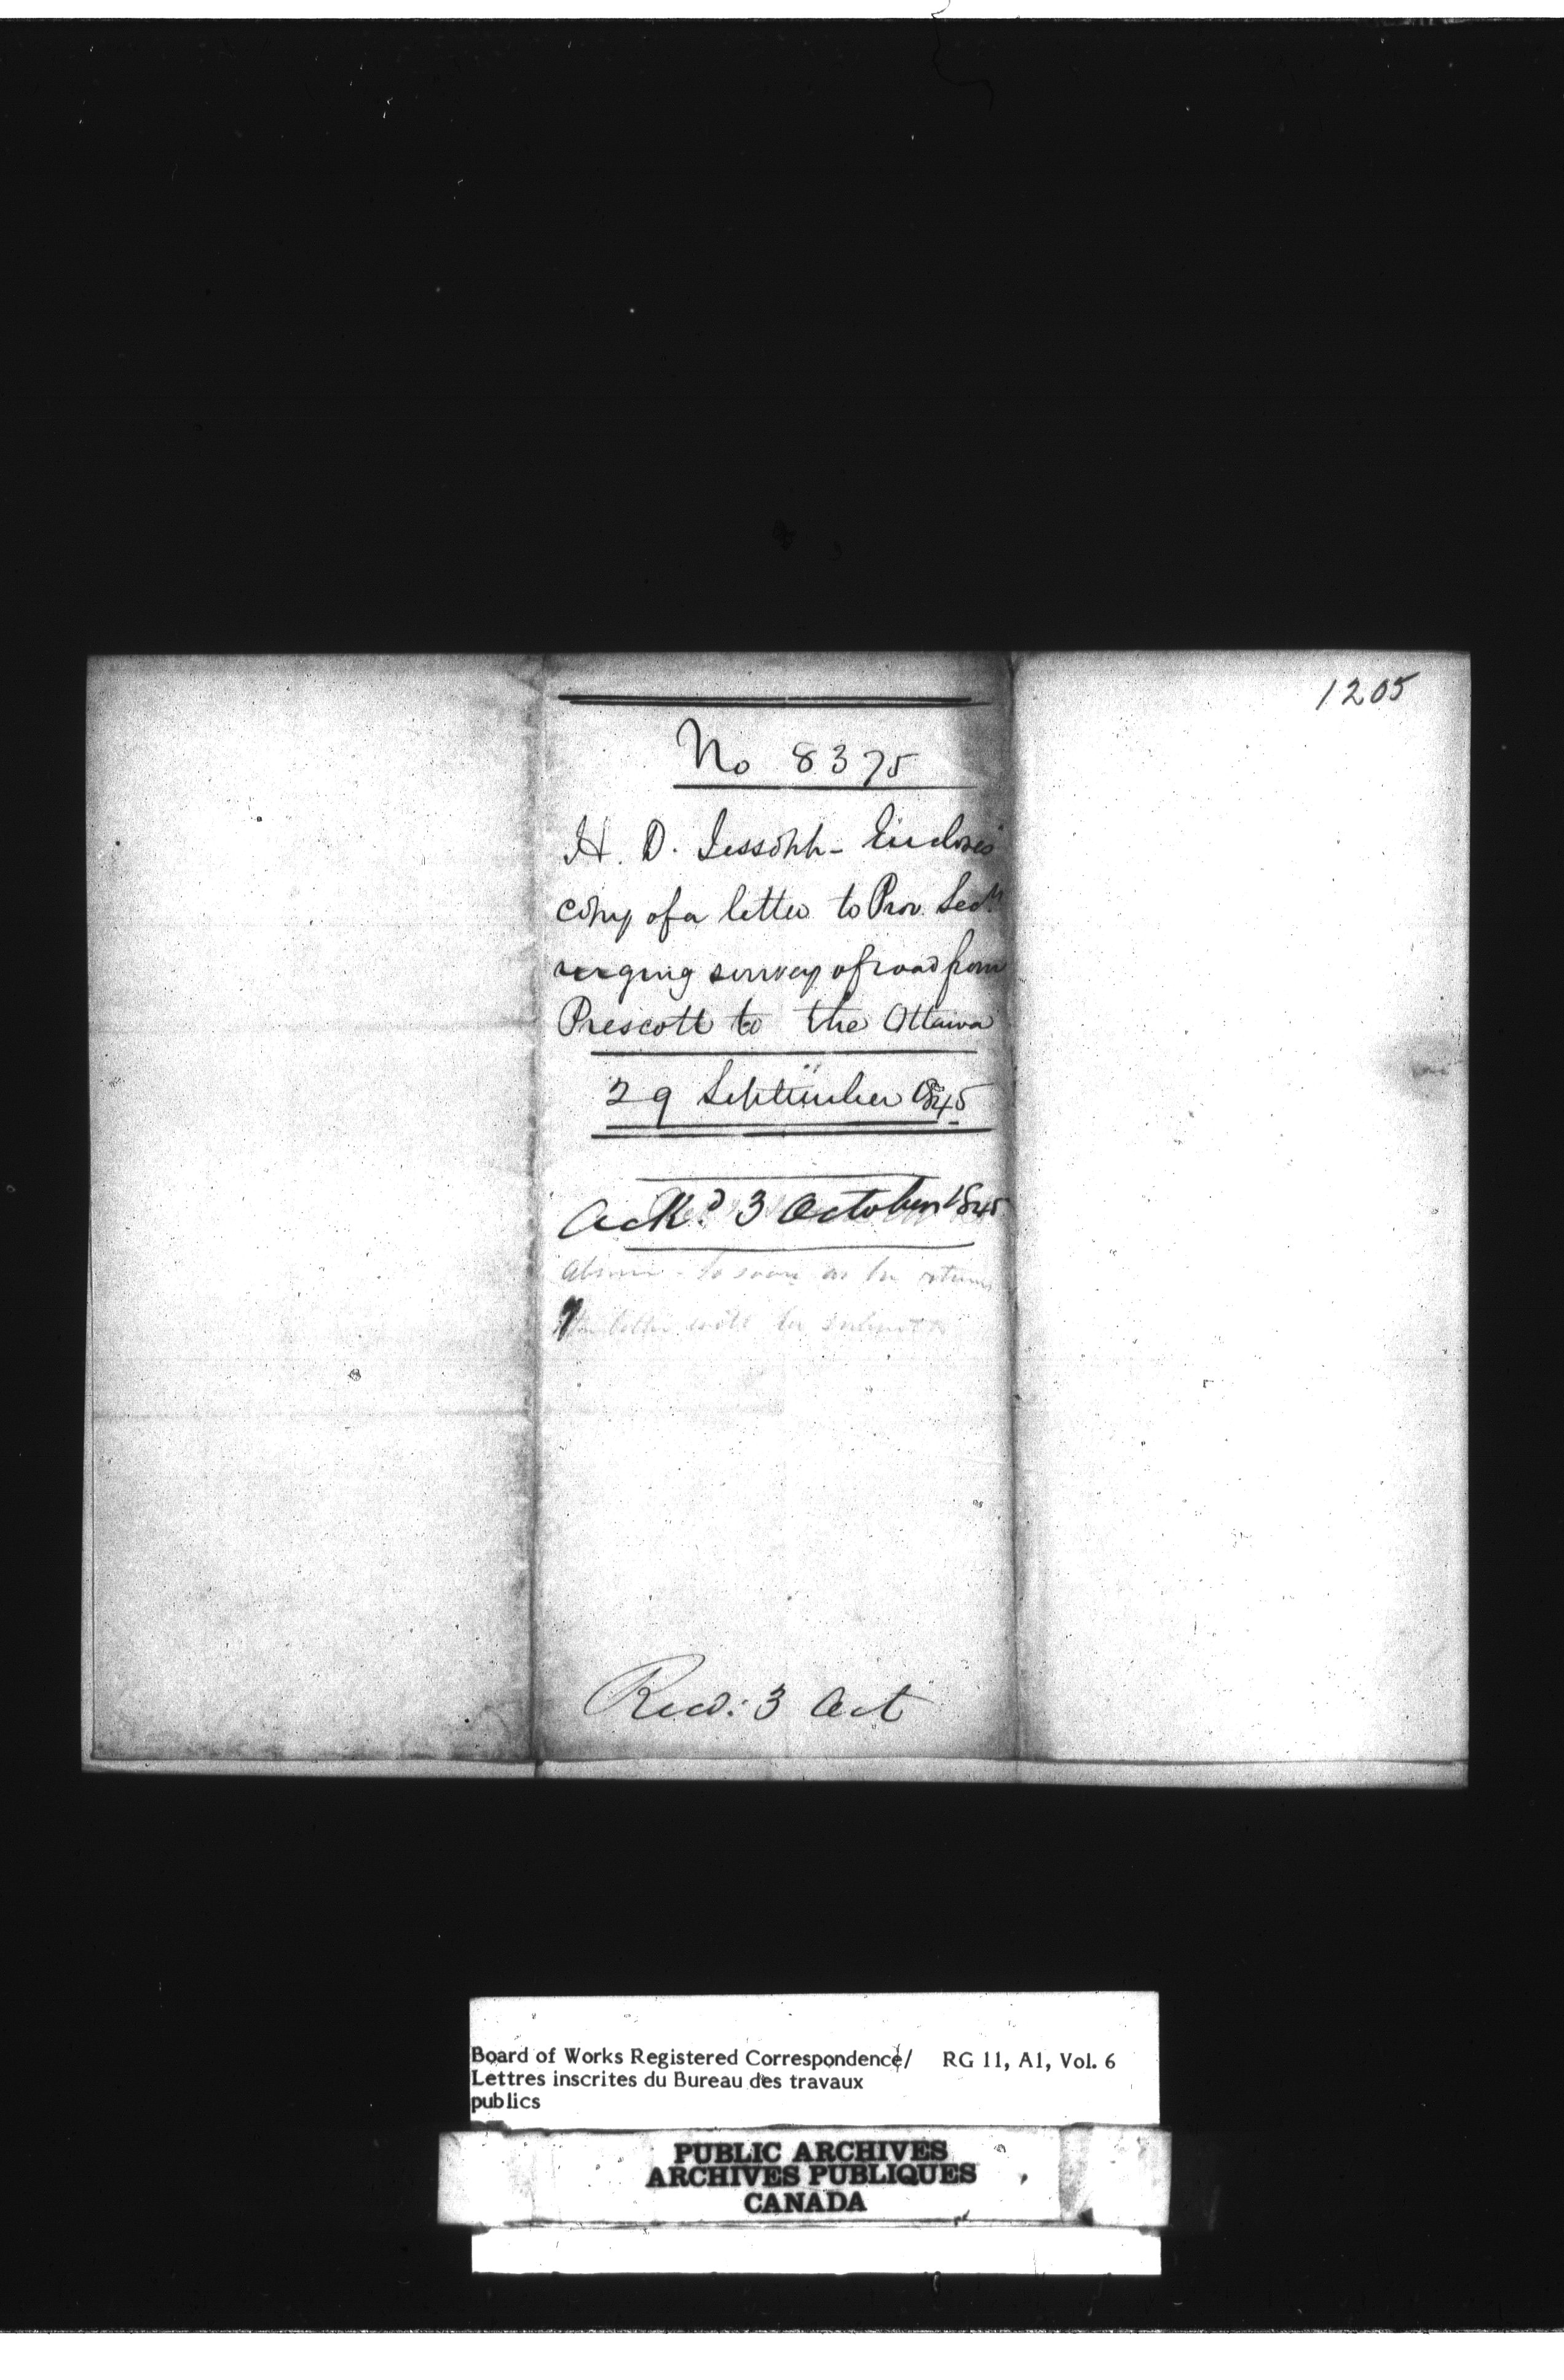 1205
No 8375
H. D. Jessopp - Encloses
copy of a letter to Prov. Secy
urging survey of road from
Prescott to the Ottawa
29 September 1845
Ackd 3 October 1845
absence - So soon as he returns
the letter will be submitted
Recd: 3 Oct
Board of Works Registered Correspondence/ RG 11, A1, Vol. 6
Lettres inscrites du Bureau des travaux
publics
PUBLIC ARCHIVES
ARCHIVES PUBLIQUES
CANADA